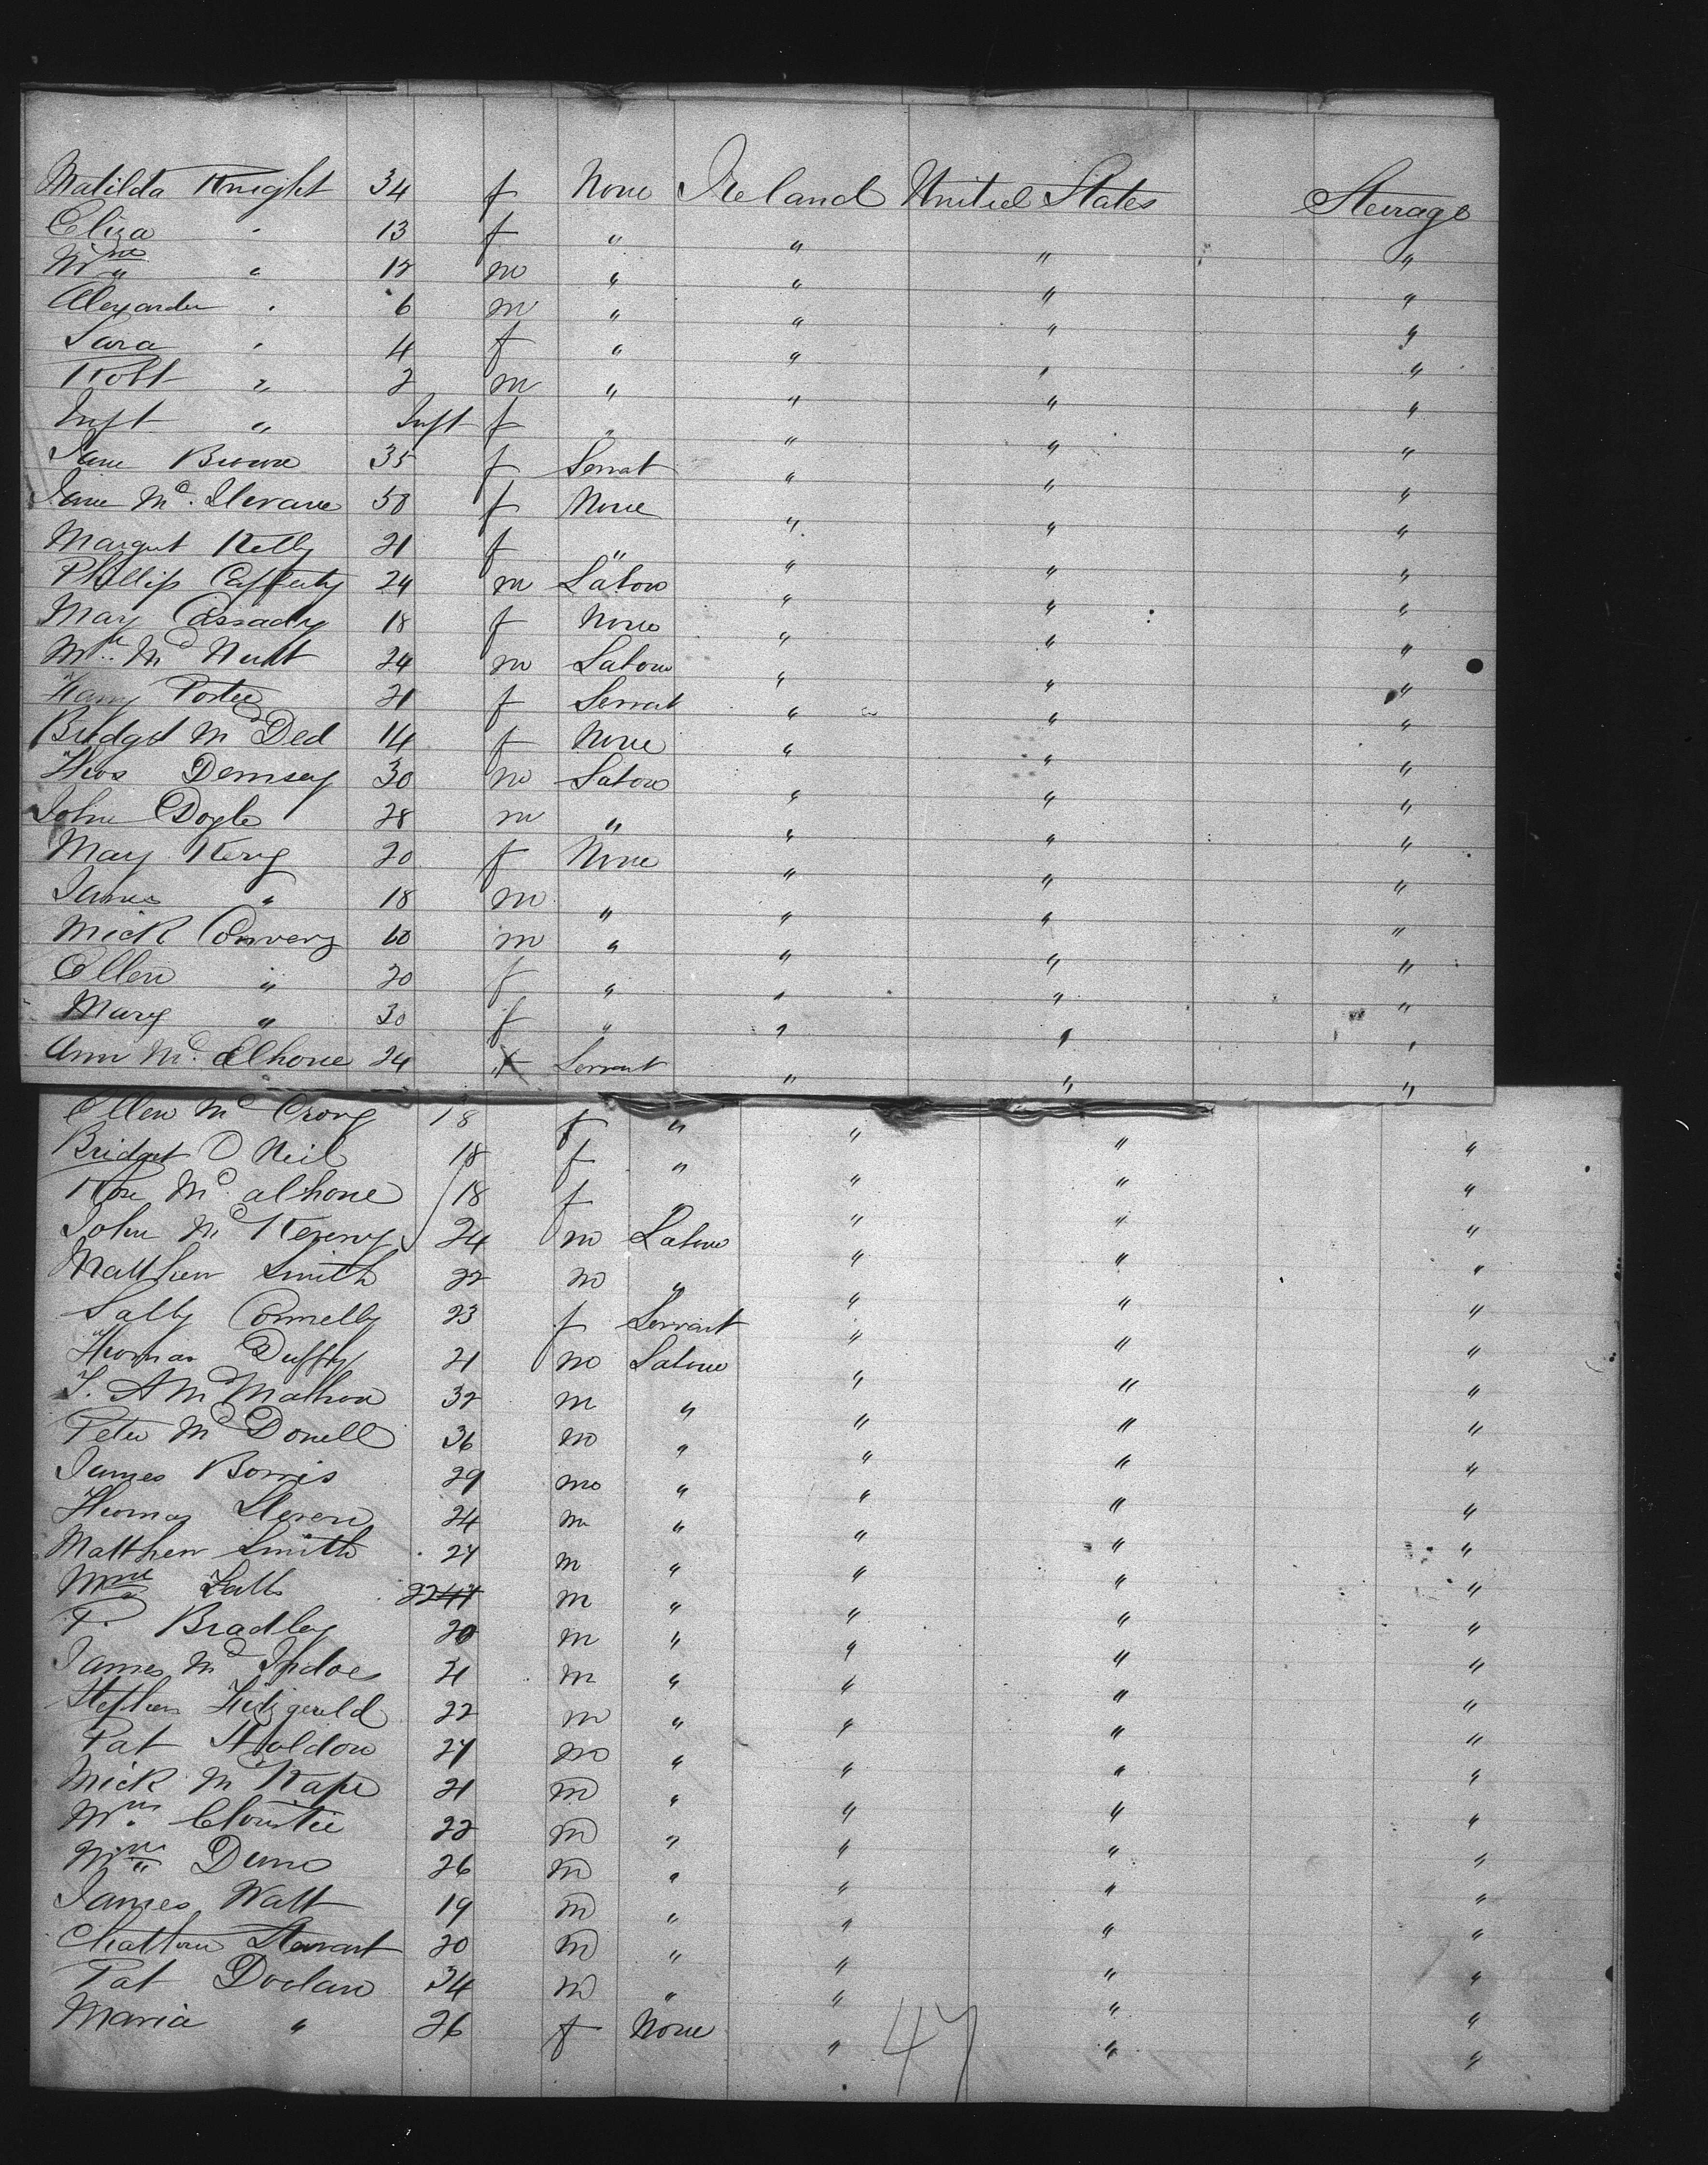 Matilda Knight 34 f None Ireland United States Steerage
Eliza " 13 f " " " "
Wm " 12 m " " " "
Alexander " 6 m " " " "
Sara " 4 f " " " "
Robt " 2 m " " " "
Inft " Inft f " " " "
Jane Brown 35 f Servat " " "
Jane Mc. 50 f None " " "
Margret Kelly 21 f " " " "
Phillip Cafferty 24 m Labour " " "
Mary Cassady 18 f None " " "
Wm Mc Nutt 24 m Labour " " "
Porter 21 f Servat " " "
Bridget Mc Ded 14 f None " " "
Thos Demsey 30 m Labour " " "
John Doyle 28 m " " " "
Mary Kery 20 f None " " "
James " 18 m " " " "
Mick Convery 60 m " " " "
Ellen " 20 f " " " "
Mary " 30 f " " " "
Ann Mc. Elhone 24 f Servant " " "
Ellen Mc Crory 18 f " " " "
Bridget O Neil 18 f " " " "
Rose Mc. alhone 18 f " " " "
John Mc 24 m Labour " " "
Matthew Smith 22 m " " " "
Sally Connelly 23 f Servant " " "
Thomas Duffy 21 m Labour " " "
Mc Mathon 32 m " " " "
Peter Mc Donell 36 m " " " "
James Borris 29 m " " " "
Thomas 24 m " " " "
Matthew Smith 24 m " " " "
Wm 22 44 m " " " "
P. Bradley 20 m " " " "
James Mc Indoe 21 m " " " "
Stephen Fitzgerald 22 m " " " "
Pat Holdon 27 m " " " "
Mick Mc Kape 21 m " " " "
Wm. 22 m " " " "
Wm Dunn 26 m " " " "
James Watt 19 m " " " "
Stewart 20 m " " " "
Pat Doolan 34 m " " " "
Maria " 26 f None " " "
47